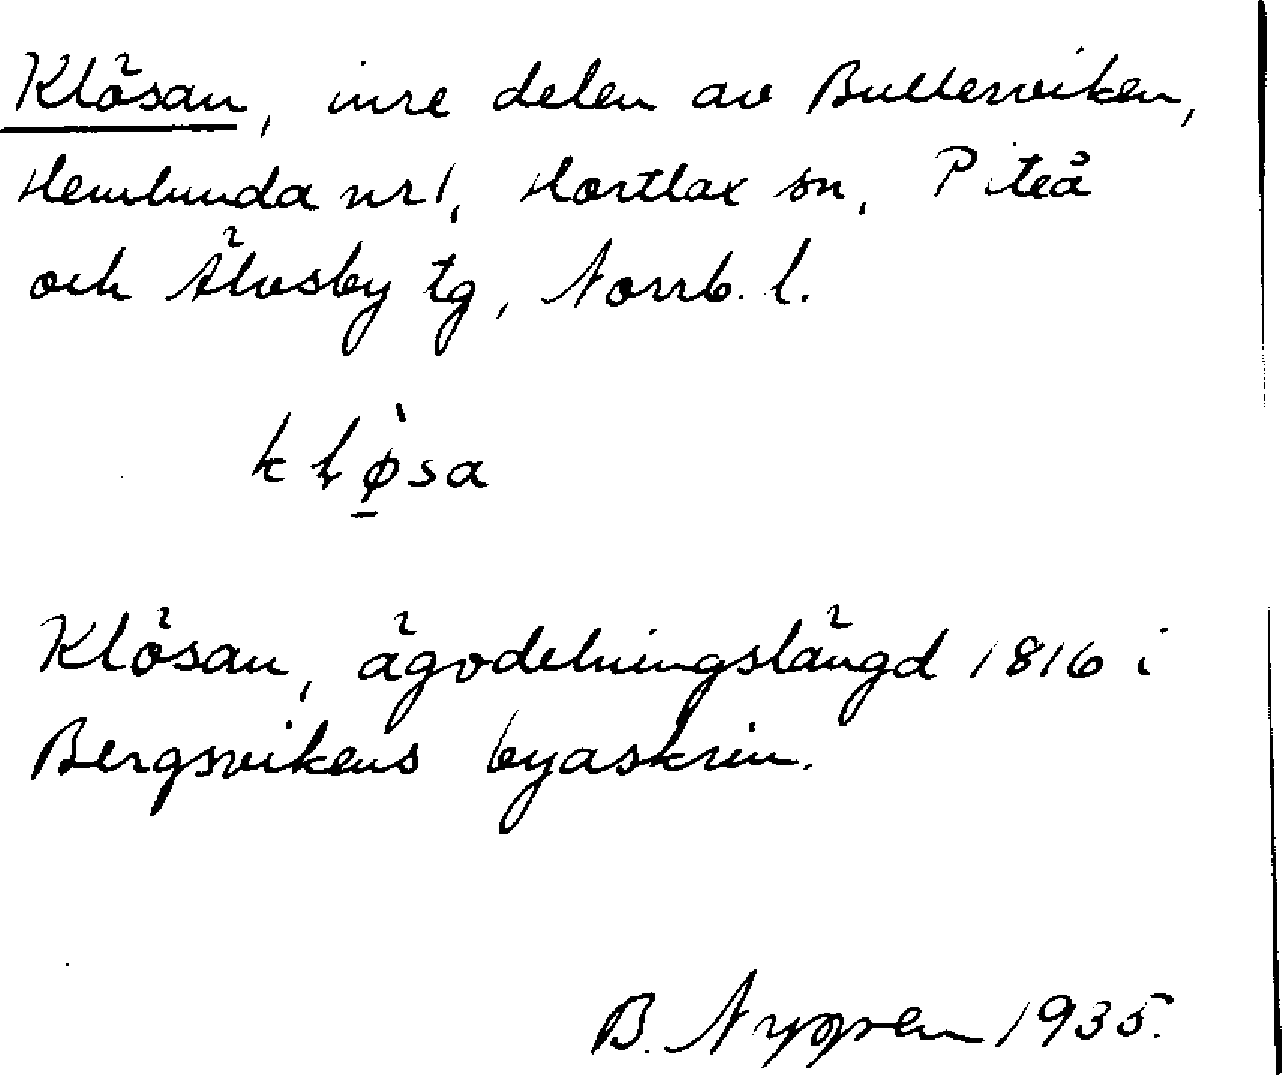 Klösan, inre delen av Bullerviken,
Hemlunda nr 1, Hortlax sn, Piteå
och Älvsby tg, Norrb. l.
klø̱̀sa
Klösan, ägodelningslängd 1816 i
Bergsvikens byaskrin.
B. Nygren 1935.